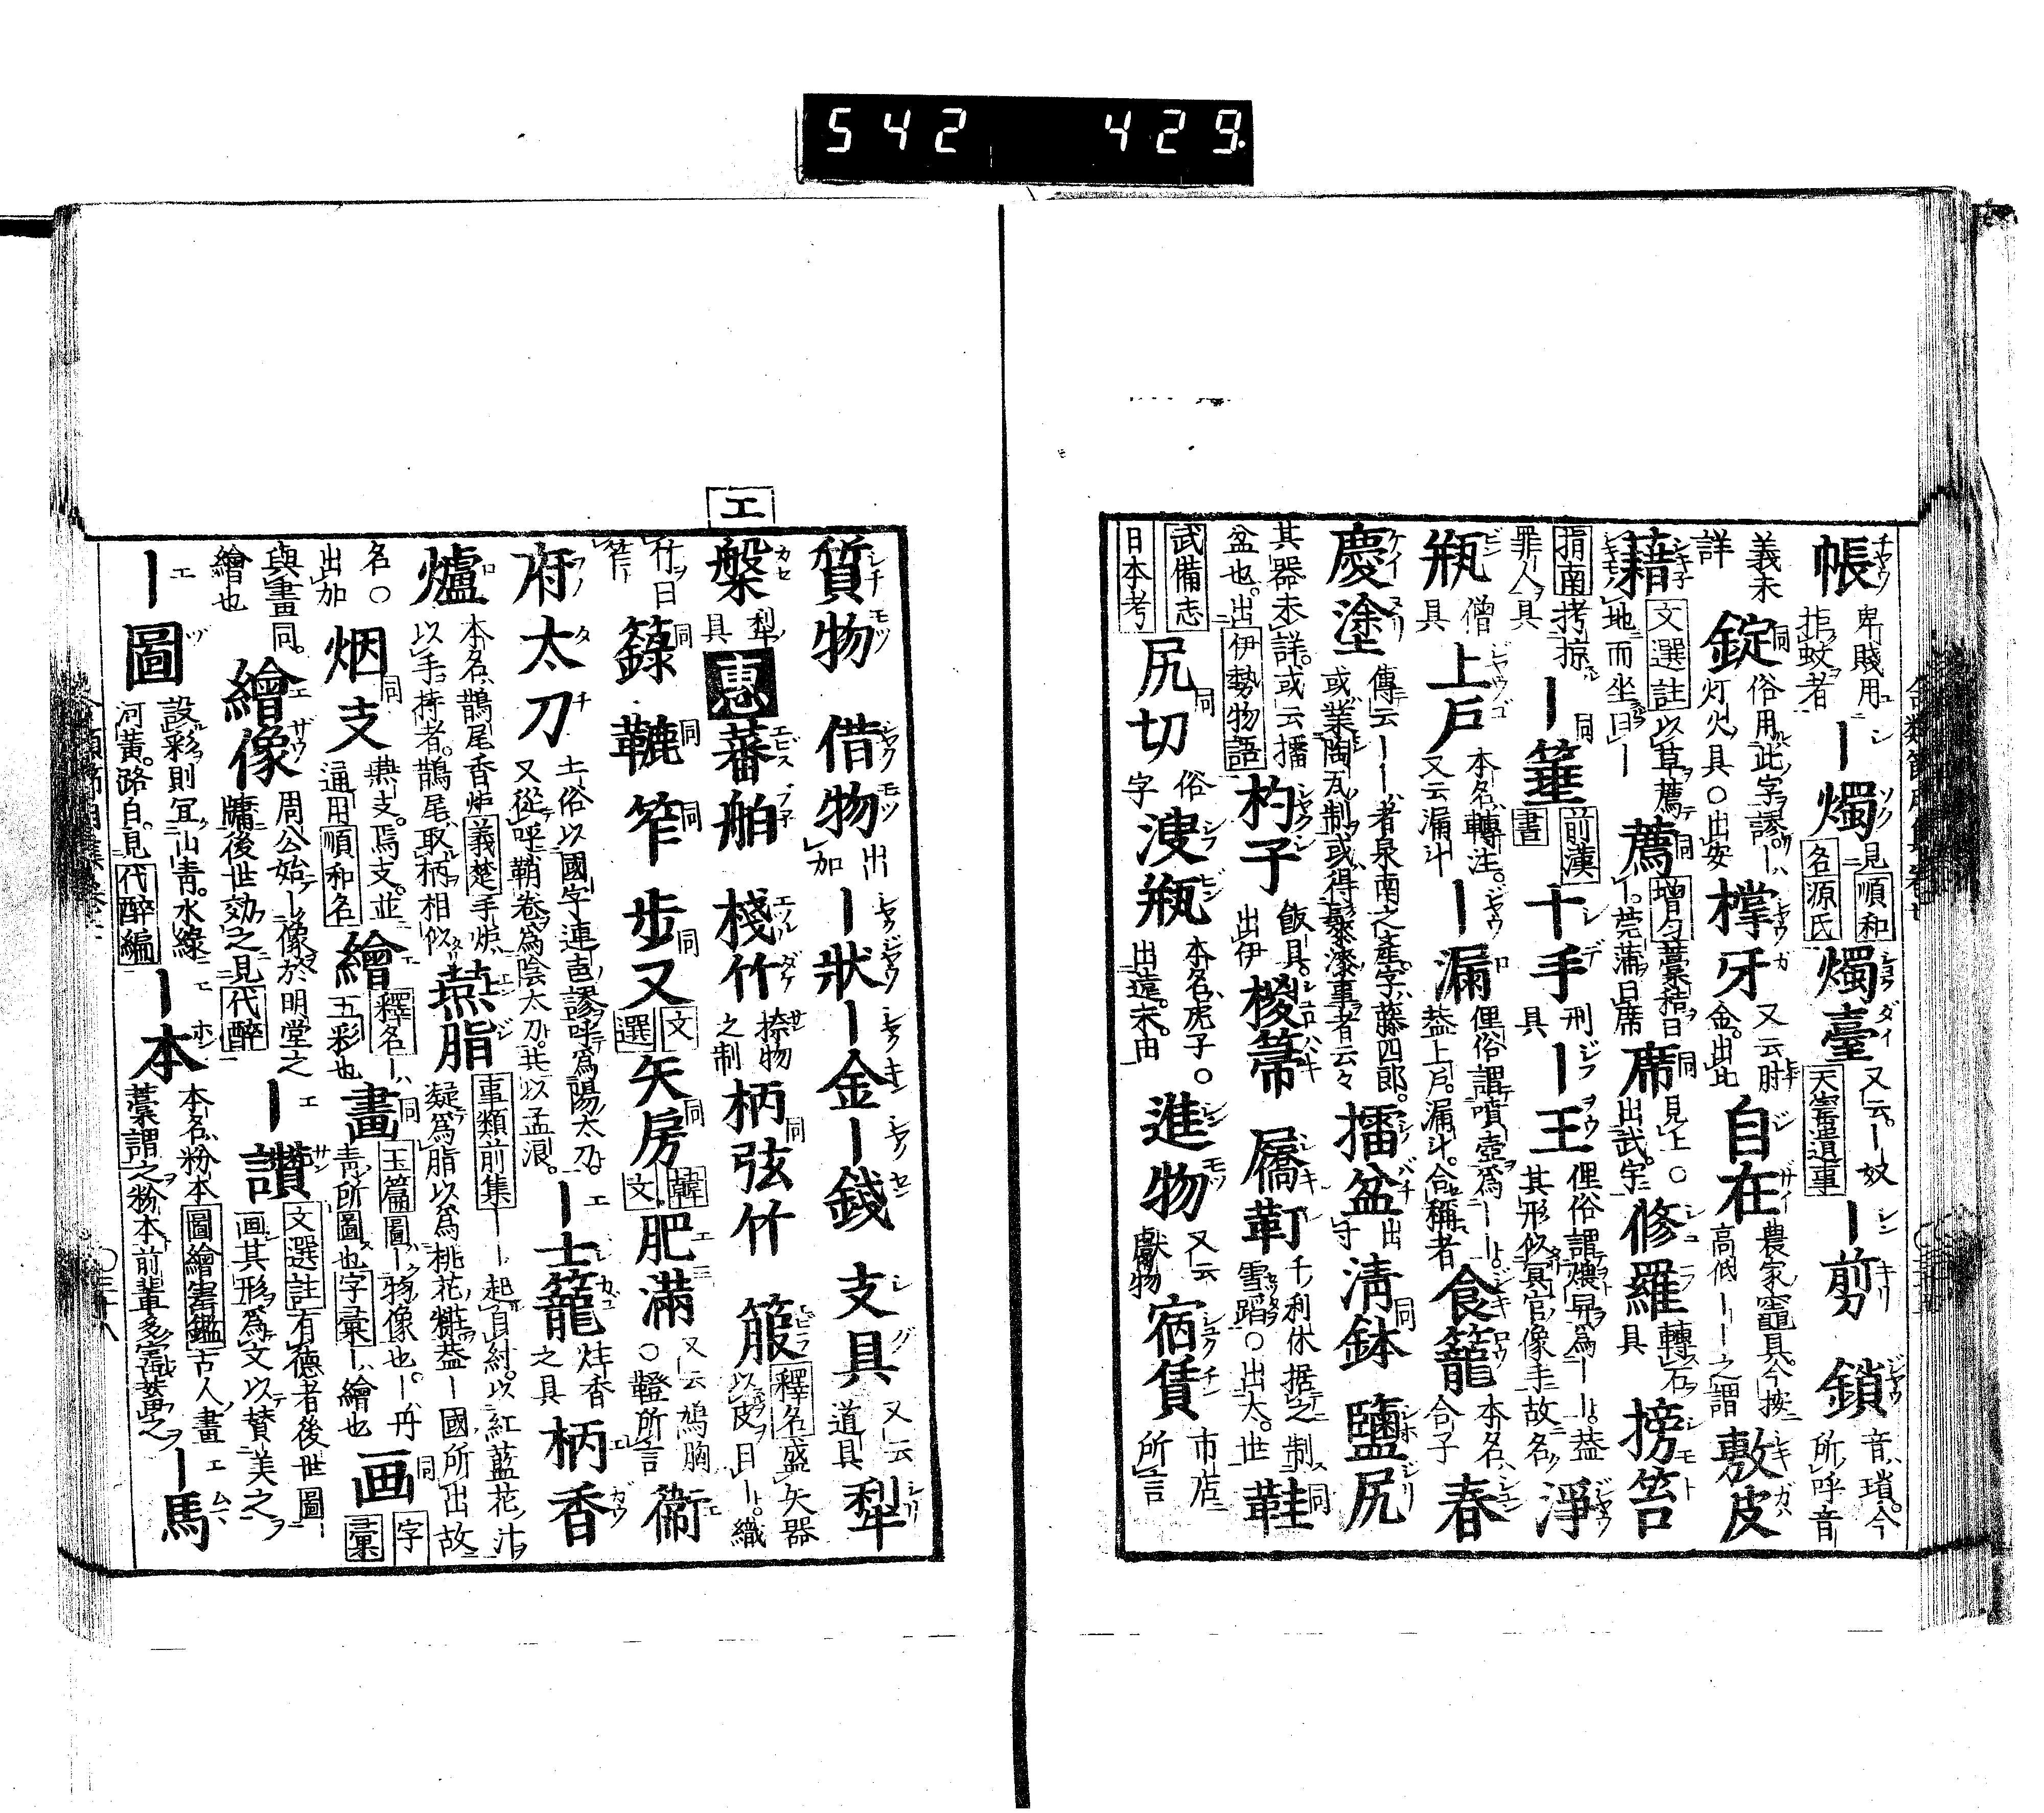 542 429.
帳 卑賤用拒蚊者 ｜燭 見順和名源氏 燭臺 又云｜奴天寳遺事 ｜剪 鎖 音瑣今所呼音
義未詳 錠 同 俗用此字謬｜灯火具○出安 樘牙 又云肘金出比 自在 農家竈具今按高低｜｜之謂 敷皮
藉 文選註以草薦地而坐曰｜ 薦 同 増勻藁秸曰｜莞蒲曰席 席 同 見上○出武字 修羅 轉石具 搒笞
指南拷掠罪人具 ｜箠 同 前漢書 千手 刑具 ｜王 俚俗謂煨早為｜｜蓋其形似冥官像手故名 淨
瓶 僧具 上戸 本名轉注又云漏斗 ｜漏 俚俗謂噴壺為｜｜蓋上戸漏斗合稱者 食籠 本名合子 春
慶塗 傳云｜｜者泉南之産字藤四郎或業陶瓦制或得髹漆事者云々 擂盆 出守 淸鉢 同 鹽尻
其器未詳或云擂盆也出伊勢物語 杓子 飯具出伊 椶箒 屩靪 千利休据之制雪蹈○出大世 鞋 同
武備志日本考 尻切 同 俗字 溲瓶 本名虎子○出遠末由 進物 又云獻物 宿賃 市店所言
質物 借物 出加 ｜狀 ｜金 ｜錢 支具 又云道具 犁
槃 犁具 惠 蕃舶 棧竹 捺物之制 柄弦竹 同 箙 釋名盛矢器以皮曰｜織
竹曰笮｜ 籙 同 䩮 同 笮 同 步叉 同 文選 矢房 同 韓文 肥滿 又云鳩胸○鐙所言 衞
府太刀 土俗以國字連声謬呼為陽太刀又從呼鞘卷為陰太刀共以孟浪 ｜士籠 炷香之具 柄香
爐 本名鵲尾香炉義楚手炉以手持者鵲尾取柄相似 燕脂 事類前集｜｜起自紂以紅藍花汁凝為脂以為桃花粧蓋｜國所出故
名○出加 烟支 同 燕支焉支並通用順和名 繪 釋名｜五彩也 畫 同 玉篇圖｜物像也｜丹青所圖也字彙｜繪也 画 同 字彙
與畫同繪也 繪像 周公始｜像於明堂之牖後世効之見代醉 ｜讃 文選註有德者後世圖画其形為文以賛美之
｜圖 設彩則冝山青水綠河黄路白見代醉編 ｜本 本名粉本圖繪寳鑑古人畫藁謂之粉本前輩多寳蓄之 ｜馬
エ